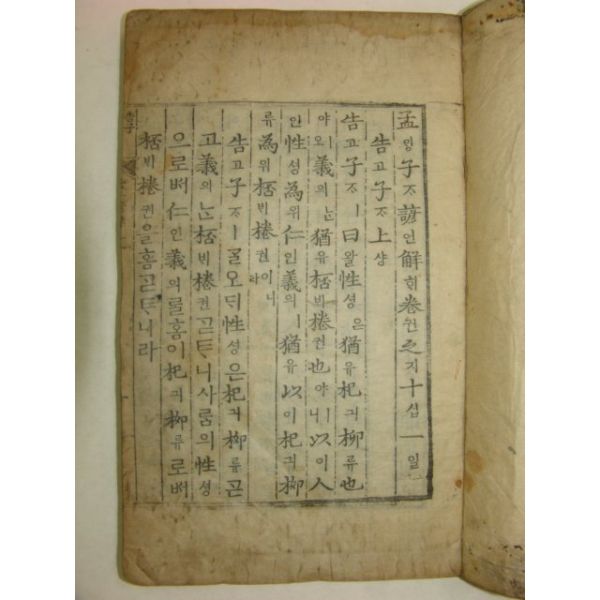 孟밍子ᄌᆞ諺언解ᄒᆡ卷권之지十십一일
告고子ᄌᆞ上샹
告고子ᄌᆞㅣ曰왈性셩은猶유杞긔柳류也
야오義의ᄂᆞᆫ猶유桮ᄇᆡ棬권也야ㅣ니以이人
인性셩為위仁인義의ㅣ猶유以이杞긔柳
류為위桮ᄇᆡ棬권이니라
告고子ᄌᆞㅣᄀᆞᆯ오ᄃᆡ性셩은杞긔柳류ᄀᆞᆮ
고義의ᄂᆞᆫ桮ᄇᆡ棬권ᄀᆞᆮᄐᆞ니사ᄅᆞᆷ의性셩
으로ᄡᅥ仁인義의ᄅᆞᆯᄒᆞᆷ이杞긔柳류로ᄡᅥ
桮ᄇᆡ棬권을ᄒᆞᆷᄀᆞᆮᄐᆞ니라